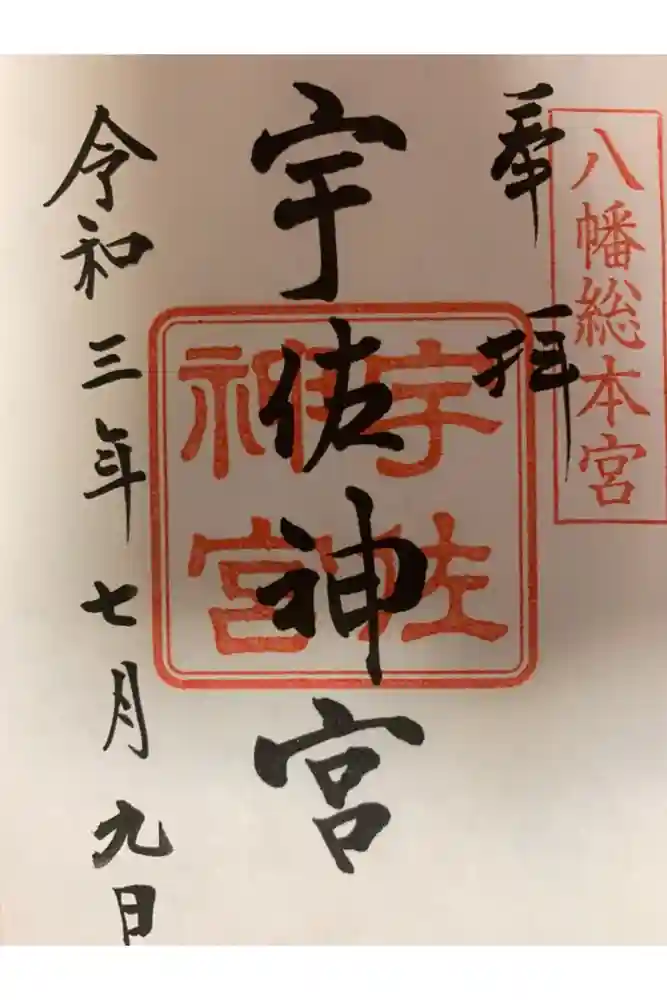 八幡総本宮
奉拝
宇佐神宮
宇佐
神宮
令和三年七月九日